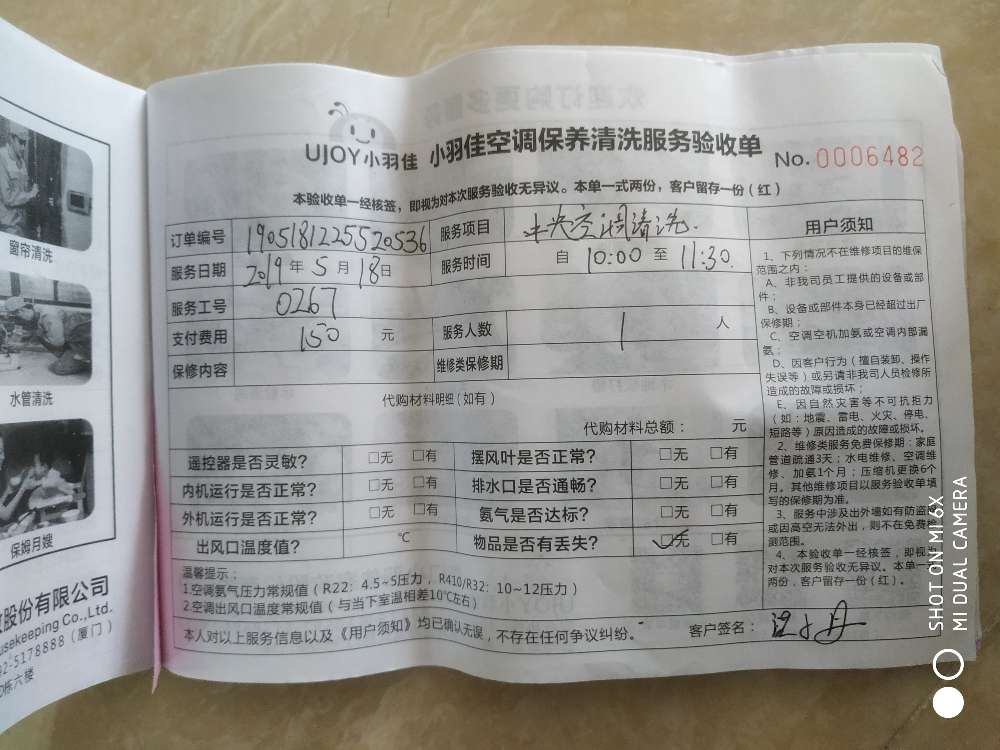 窗帘清洗
水管清洗
保姆月嫂
股份有限公司
usekeeping Co.,Ltd.
92-5178888(厦门)
D栋六楼
UJOY小羽佳 小羽佳空调保养清洗服务验收单 No.0006482
本验收单一经核签，即视为对本次服务验收无异议。本单一式两份，客户留存一份(红)
订单编号 1905181225520536 服务项目 中央空调清洗.
服务日期 2019年5月18日 服务时间 自 10:00 至 11:30.
服务工号 0267
支付费用 150 元 服务人数 1 人
保修内容 维修类保修期
代购材料明细(如有)
代购材料总额： 元
遥控器是否灵敏? □无 □有 摆风叶是否正常? □无 □有
内机运行是否正常? □无 □有 排水口是否通畅? □无 □有
外机运行是否正常? □无 □有 氨气是否达标? □无 □有
出风口温度值? ℃ 物品是否有丢失? ☑无 □有
温馨提示：
1.空调氨气压力常规值(R22: 4.5~5压力，R410/R32: 10~12压力)
2.空调出风口温度常规值(与当下室温相差10℃左右)
本人对以上服务信息以及《用户须知》均已确认无误，不存在任何争议纠纷。 客户签名：
用户须知
1、下列情况不在维修项目的维保
范围之内：
A、非我司员工提供的设备或部
件；
B、设备或部件本身已经超过出厂
保修期；
C、空调空机加氨或空调内部漏
氨；
D、因客户行为(擅自装卸、操作
失误等)或另请非我司人员检修所
造成的故障或损坏；
E、因自然灾害等不可抗拒力
(如：地震、雷电、火灾、停电、
短路等)原因造成的故障或损坏。
2、维修类服务免费保修期：家庭
管道疏通3天；水电维修、空调维
修、加氨1个月；压缩机更换6个
月。其他维修项目以服务验收单填
写的保修期为准。
3、服务中涉及出外墙如有防盗网
或因高空无法外出，则不在免费检
测范围。
4、本验收单一经核签，即视为
对本次服务验收无异议。本单一式
两份，客户留存一份(红)。
SHOT ON MI 6X
MI DUAL CAMERA